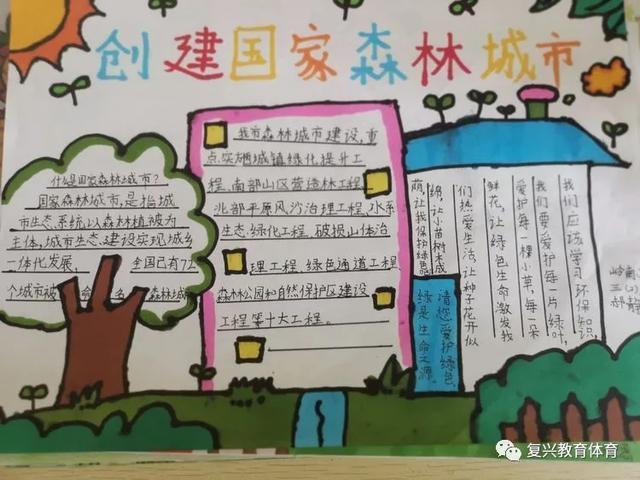 创建国家森林城市
什么是国家森林城市?
国家森林城市,是指城
市生态系统以森林植被为
主体,城市生态建设实现城乡
一体化发展, 全国已有72
个城市被 命 名 森林城
我市森林城市建设,重
点实施城镇绿化提升工
程,南部山区营造林工程
北部平原风沙治理工程,水系
生态绿化工程,破损山体治
理工程,绿色通道工程
森林公园和自然保护区建设
工程等十大工程。
我们应该学习环保知识,
我们要爱护每一片绿叶,
爱护每一棵小草,每一朵
鲜花,让绿色生命激发我
们热爱生活,让种子花开似
锦,让小苗树木成
荫,让我保护绿意
请您爱护绿色,
绿是生命之源
岭南
三(2)
郝静
复兴教育体育